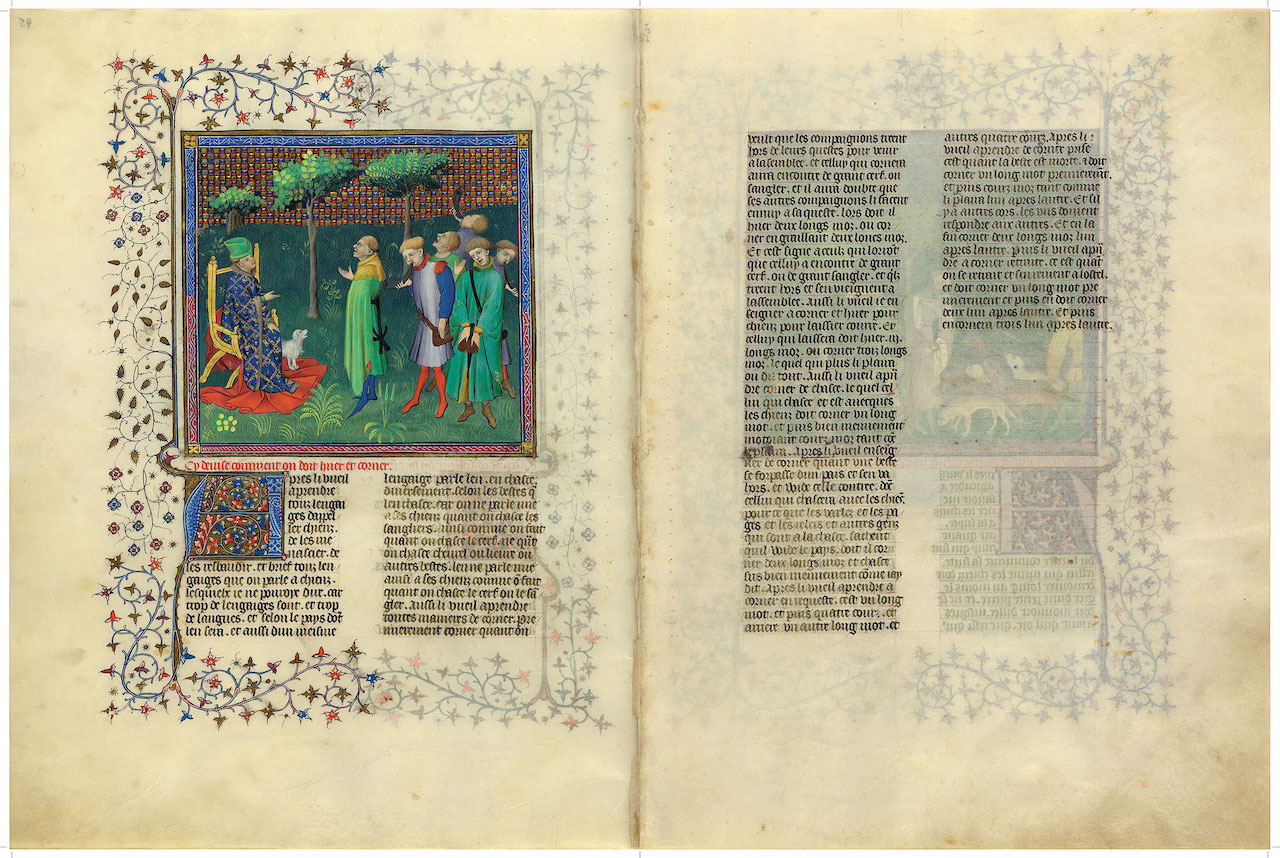 24
Cy devise comment on doit huer et corner.
Apres li vueil
aprendre
tous lengai
ges dapel
ler chiens
de les me
nascier. de
les resbaudir. et brief tous len
gaiges que on parle a chiens.
lesquelx ie ne pourroye dire. car
trop de lengaiges sont. et trop
de langues. et selon le pays dont
len sera. et aussi dun meisme
lengaige parle len. en chasse.
diversement. selon les bestes que
len chasse. car on ne parle mie
a ses chiens quant on chasse les
sangliers. ainsi comme on fait
quant on chasse le cerf. ne quant
on chasse chevrel ou lievre ou
autres bestes. len ne parle mie
ainsi a ses chiens comme on fait
quant on chasse le cerf ou le san
gler. Aussi li vueil aprendre
toutes manieres de corner. pre
mierement corner quant on
veult que les compaignons tirent
hors de leurs questes pour venir
a lassemblee. et celluy qui cornera
aura encontre de grant cerf. ou
sangler. et il aura doubte que
ses autres compaignons li facent
ennuy a sa queste. lors doit il
huer deux longs moz. ou cor
ner en graillant deux loncs moz.
Et cest signe a ceulx qui lorront
que celluy a encontre de grant
cerf. ou de grant sangler. et quilz
tirent hors et sen viegnent a
lassemblee. Aussi li vueil ie en
seigner a corner et huer pour
chiens pour laissier courre. Et
celluy qui laissera doit huer .iij.
longs moz. ou corner trois longs
moz. le quel qui plus li plaira
ou du tout. Aussi li vueil apren
dre corner de chasse. le quel cel
lui qui chasse et est avecques
les chiens doit corner un long
mot. et puis bien menuement
motoiant cours moz tant com
Apres li vueil enseig
ner de corner quant une beste
se forpasse dun pais et sen va
hors. et wide celle contree. dont
cellui qui chassera avec les chiens.
pour ce que les varlez et les pa
ges et les relais et autres gens
qui sont a la chasse. sachent
quil wide le pays. doit il cor
ner deux longs moz. et chasser
sus bien menuement comme iay
dit. Apres li vueil aprendre a
corner en requeste. cest un long
mot. et puis quatre cours. et
arriere un autre long mot. et
autres quatre cours. Apres li
vueil aprendre de corner prise
cest quant la beste est morte. a doit
corner un long mot premierement.
et puis cours moz tant comme
li plaira lun apres lautre. Et sil
y a autres cors. les uns doivent
respondre aux autres. Et en la
fin corner deux longs moz lun
apres lautre. puis li vueil apren
dre a corner retraite. ce est quant
on se retrait et sen vient a lostel.
et doit corner un long mot pre
mierement et puis en doit corner
deux lun apres lautre. Et puis
en cornera trois lun apres lautre.